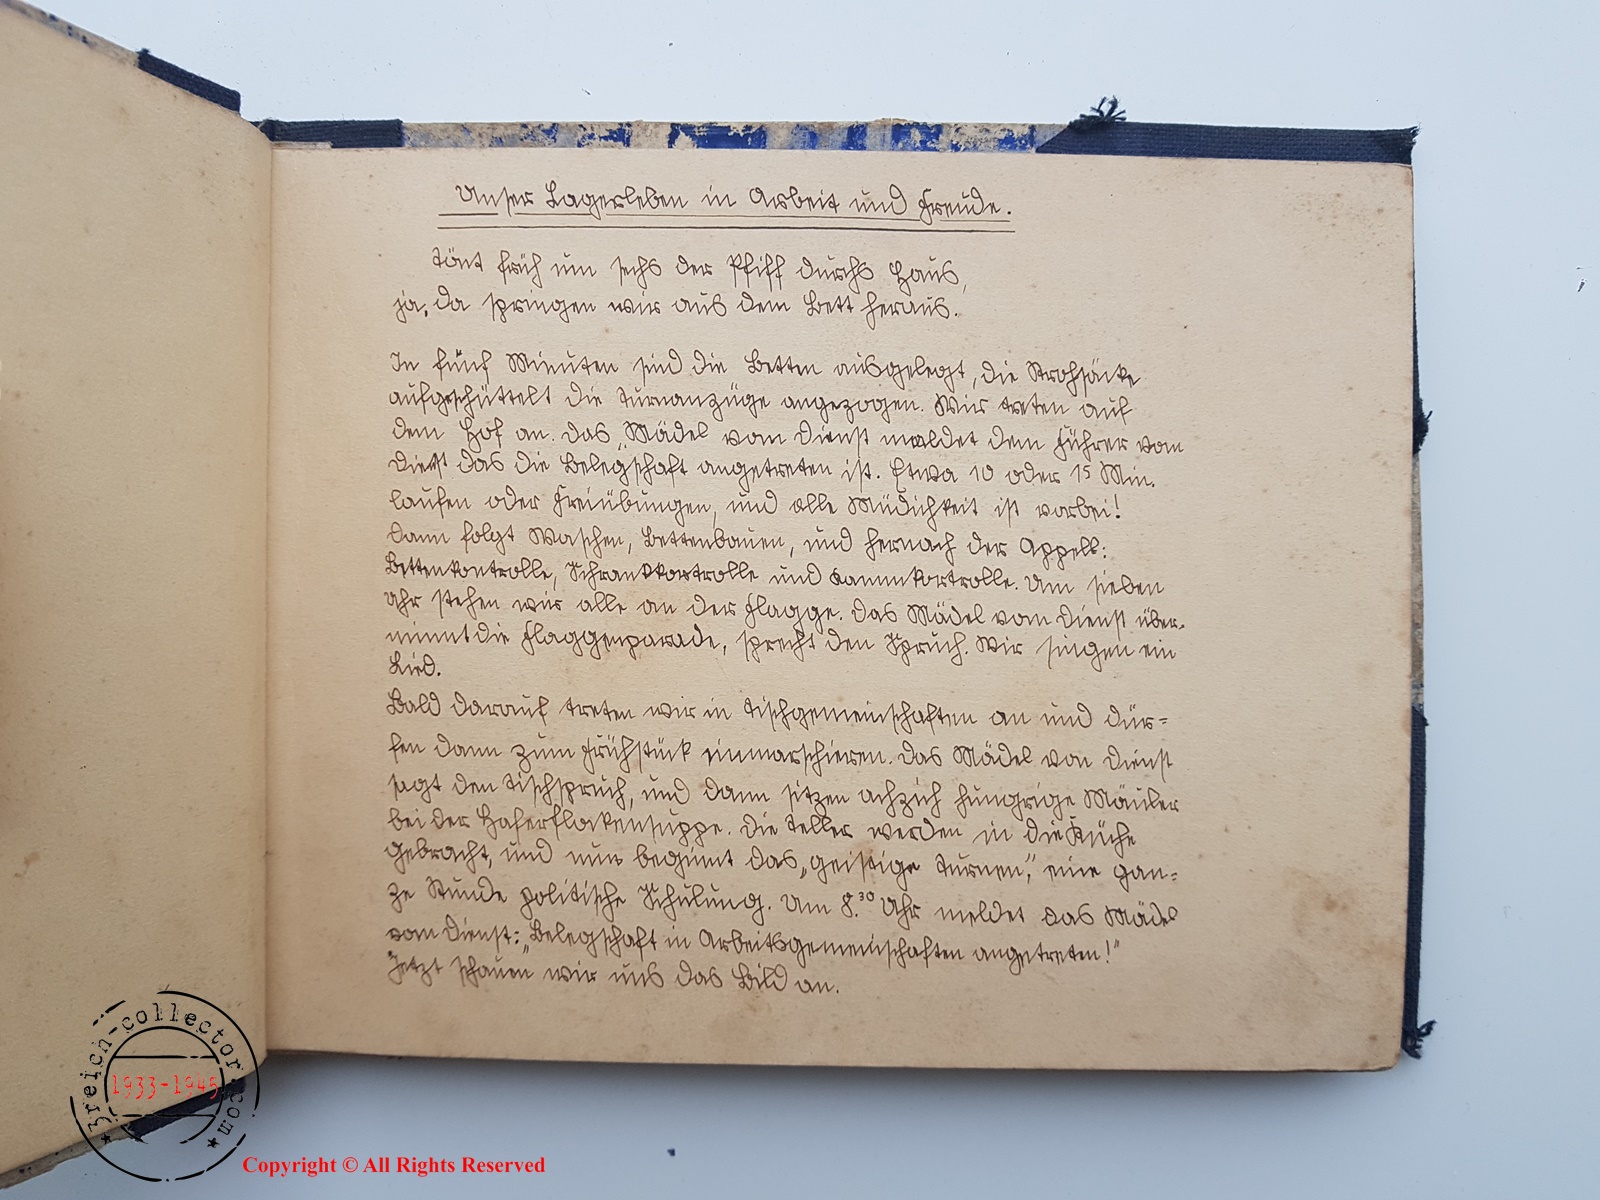 Unser Lagerleben in Arbeit und Freude.
Tönt früh um sechs der Pfiff durchs Haus,
ja, da springen wir aus dem Bett heraus.
In fünf Minuten sind die Betten ausgelegt, die Strohsäcke
aufgeschüttelt die Turnanzüge angezogen. Wir treten auf
dem Hof an. Das „Mädel vom Dienst meldet dem Führer vom
Dienst das die Belegschaft angetreten ist. Etwa 10 oder 15 Min.
laufen oder Freiübungen, und alle Müdichkeit ist vorbei!
Dann folgt Waschen, Bettenbauen, und hernach der Appell:
Bettenkontrolle, Schrankkontrolle und Kammkontrolle. Um sieben
Uhr stehen wir alle an der Flagge. Das Mädel vom Dienst über-
nimmt die Flaggenparade, sprecht den Spruch. Wir singen ein
Lied.
Bald darauf treten wir in Tischgemeinschaften an und dür=
fen dann zum Frühstück einmarschieren. Das Mädel von Dienst
sagt den Tischspruch, und dann sitzen achzich hungrige Mäuler
bei der Haferflokensuppe. Die Teller werden in die Küche
gebracht, und nun begint das „geistige Turnen", eine gan=
ze Stunde politische Schulung. Um 8.30 Uhr meldet das Mädel
vom Dienst: „Belegschaft in Arbeitsgemeinschaften angetreten!"
Jetzt schauen wir uns das Bild an.
3reich-collector.com
1933-1945
Copyright © All Rights Reserved